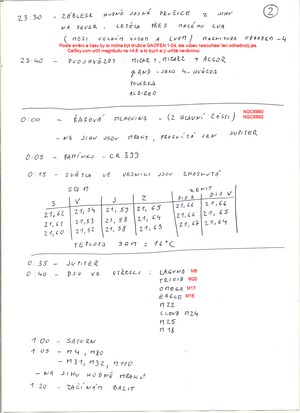 2
23:30 - ZÁBLESK HODNĚ JASNÉ DRUŽICE Z JIHU
NA SEVER. LETĚLA PŘES MALÉHO LVA
(MEZI VELKÝM VOZEM A LVEM) MAGNITUDA ODHADEM -4
Podle směru a času by to mohla být družice GAOFEN 1-04, ale vůbec nesouhlasí ten odhadnutý jas.
23:40 - DVOJHVĚZDY: MIZAR 1, MIZAR 2 + ALCOR
POLÁRKA
ALBIREO
0:00 - ŘASOVÁ MLHOVINA - (2 HLAVNÍ ČÁSTI)
NGC6960
NGC6992
- NA JIHU JSOU MRAKY, PROSVÍTÁ JEN JUPITER
0:05 - RAMÍNKO - CR 399
0:15 - SVĚTLA VE VESNICI JSOU ZHASNUTÁ
SQM
ZENIT
S V J Z
21,62 21,54 21,59 21,65 21,66 21,66
21,61 21,53 21,58 21,64 21,66 21,65
21,60 21,52 21,58 21,63 21,67 21,64
TEPLOTA SQM = 16°C
0:35 - JUPITER
0:40 - DSO VE STŘELCI: LAGUNA M8
TRIFID M20
OMEGA M17
EAGLE M16
M22
CLOUD M24
M25
M18
1:00 - SATURN
1:05 - M4, M80
- M31, M32, M110
- NA JIHU HODNĚ MRAKŮ
1:20 - ZAČÍNÁM BALIT